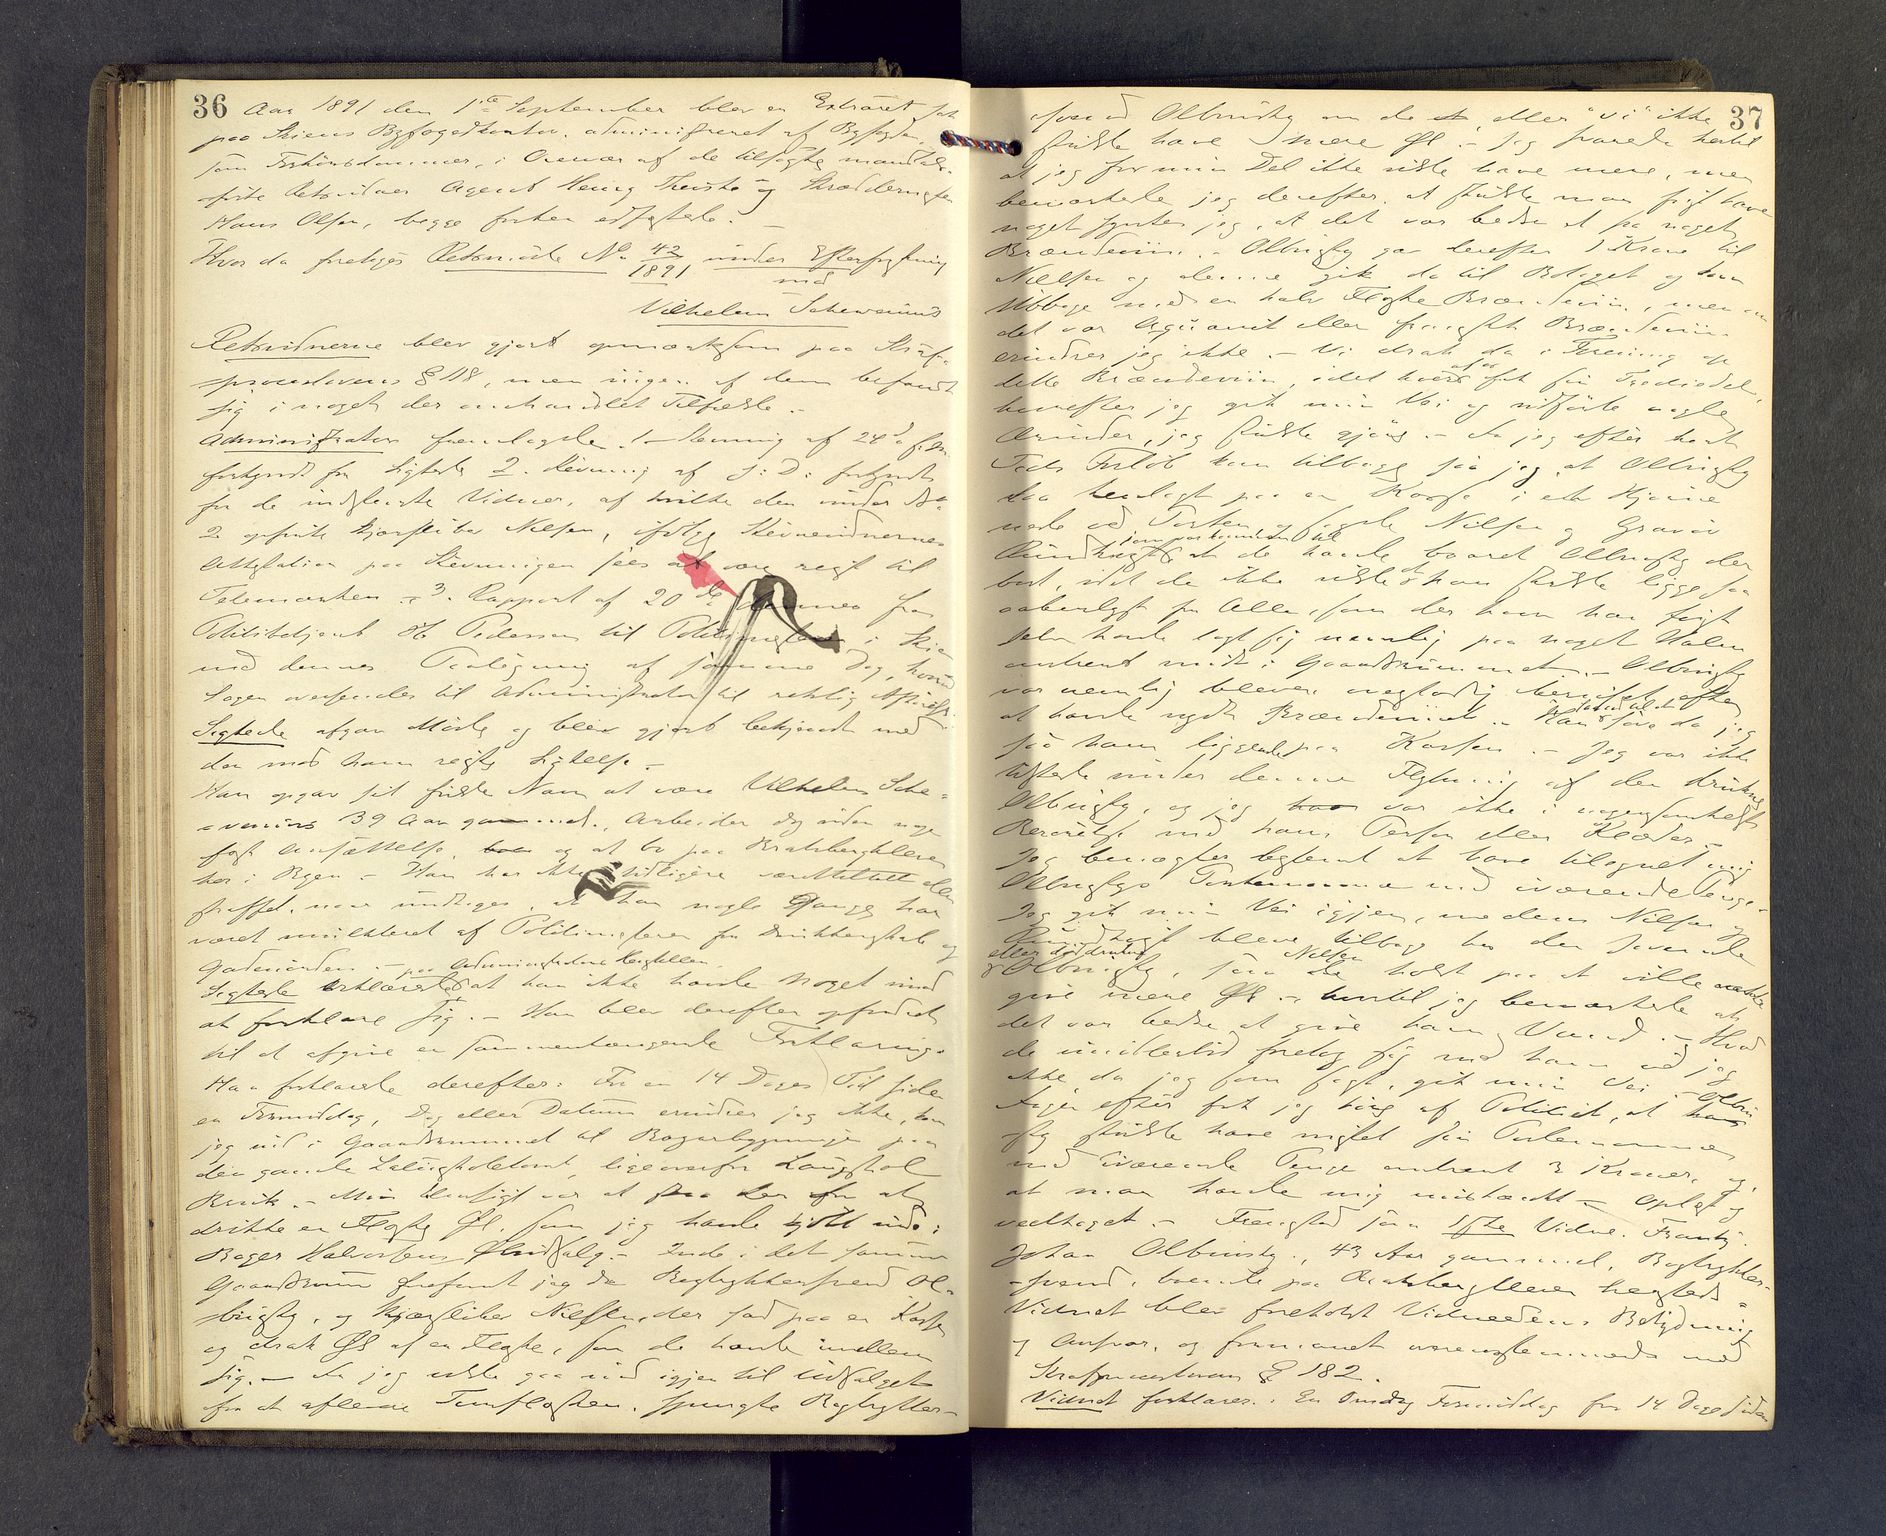 36
Aar 1891 den 1ste September blev en Extraret sat
paa Skiens Byfogedkontor, administreret af Byfogden
som Forhørsdommer, i Overvær af de tilsagte mandtals-
førte Retsvidner Agent Henry and Skræddermester
Hans Olsen, begge forhen edfæstede. –
Hvor da foretoges Retsmöde No 42/1891 under Efterforskning
mod
Vilhelm Schevenius
Retsvidnerne blev gjort opmærksom paa Straffe-
proceslovens § 118, men ingen af dem befandt
sig i noget der omhandlet Tilfælde. –
Administrator fremlagde 1. Stevning af 24de f. M.
forkyndt for Sigtede 2. Stevning af s: D: forkyndt
for de indstevnte Vidner, af hvilke den under No
2 opførte Skjærsliber Nilsen, ifølge Stevnevidnernes
Attestation paa Stevningen sees at være reist til
Telemarken – 3. Rapport af 20de fra
Politibetjent Pedersen til Politimesteren i Skien
med dennes Paategning af samme Dag, hvorved
Sagen oversendes til Administrator til retslig
Sigtede afgav Møde og blev gjort bekjendt med
den mod ham reiste Sigtelse –
Han opgav sit fulde Navn at være Vilhelm Sche-
venius 39 Aar gammel, Arbeider dog uden noget
fast Ansættelse, og at bo paa Bratsbergkleven
her i Byen – Han har ikke tidligere været tiltalt eller
straffet, naar undtages, at han nogle Gange har
været mulkteret af Politimesteren for Drikkenskab og
Gadeuorden. –
Sigtede erklærede paa Administrators Begjæring at han ikke havde noget imod
at forklare sig. – Han blev derefter opfordret
til at afgive en sammenhængende Forklaring.
Han forklarede derefter: For en 14 Dages Tid siden
en Formiddag, Dag eller Datum erindrer jeg ikke, kom
jeg ind i Gaardsrummet til Bazarbygningen paa
den gamle ligeoverfor
– Min Hensigt var at der for at
drikke en Flaske Øl, som jeg havde kjöbt inde i
Bager Halvorsens Øludsalg. – Inde i det samme
Gaardsrum forefandt jeg da Bogtrykkersvend Ol-
brigsty, og Skjærsliber Nilsen, der sad paa en Kasse
og drak Øl af en Flaske, som de havde imellem
sig. – Da jeg vilde gaa ind igjen til Udsalget
for at aflevere Tomflasken, spurgte Bogtrykker-
37
svend Olbrigsty om de eller "vi" ikke
skulde have mere Øl. – Jeg svarede hertil
at jeg for min Del ikke vilde have mere, men
bemærkede jeg derefter, at skulde man have
noget syntes jeg, at det var bedre at faa noget
Brændeviin. – Olbrigsty gav derefter 1 Krone til
Nilsen og denne gik da til Bolaget og kom
tilbage med en halv Flaske Brændeviin, men om
det var Aquavit eller Brændeviin
erindrer jeg ikke. – Vi drak da i Forening op
dette Brændeviin, idet hver af os fik sin Trediedel,
hvorefter jeg gik min Vei og udførte nogle
Ærinder, jeg skulde gjøre. – Da jeg efter kort
Tids Forløb kom tilbage saa jeg at Olbrigsty
laa henlagt paa en Kasse i et Hjørne
nede ved Porten, og sagde Nilsen og
at de havde baaret Olbrigsty der
bort, idet de ikke vilde at han skulde ligge saa
aabenlyst for Alle, som der hvor han først
selv havde lagt sig nemlig paa noget Halm
omtrent midt i Gaardsrummet. – Olbrigsty
var nemlig bleven beruset efter
at have nydt Brændeviinet. – Han sov da jeg
saa ham liggende paa Kassen. – Jeg var ikke
tilstede under denne Flytning af den drukne
Olbrigsty, og jeg var ikke i nogensomhelst
Berørelse med hans Person eller Klæder. –
Jeg benægter bestemt at have tilegnet mig
Olbrigstys Portemonnæ med iværende Penge. –
Jeg gik min Vei igjen, medens Nilsen og
blev tilbage hos den sovende
eller døddrukne Olbrigsty, som Nilsen holdt paa at ville
give mere Øl – hvortil jeg bemærkede at
det var bedre at give ham Vand. – Hvad
de imidlertid foretog sig med ham ved jeg
ikke, da jeg som sagt, gik min Vei.
Dagen efter fik jeg høre af Politiet, at Olbrig-
sty skulde have mistet sin Portemonnæ
med iværende Penge omtrent 3 Kroner, og
at man havde mig mistænkt – Oplæst og
vedtaget. – Fremstod som 1ste Vidne. Frantz
Johan Olbrigsty, 43 Aar gammel, Bogtrykker-
svend, boende paa Bratsbergkleven
Vidnet blev foreholdt Vidneedens Betydning
og Ansvar, og formanet overensstemmende med
Straffeproceslovens § 182.
Vidnet forklarer: En Onsdag Formiddag for 14 Dage siden